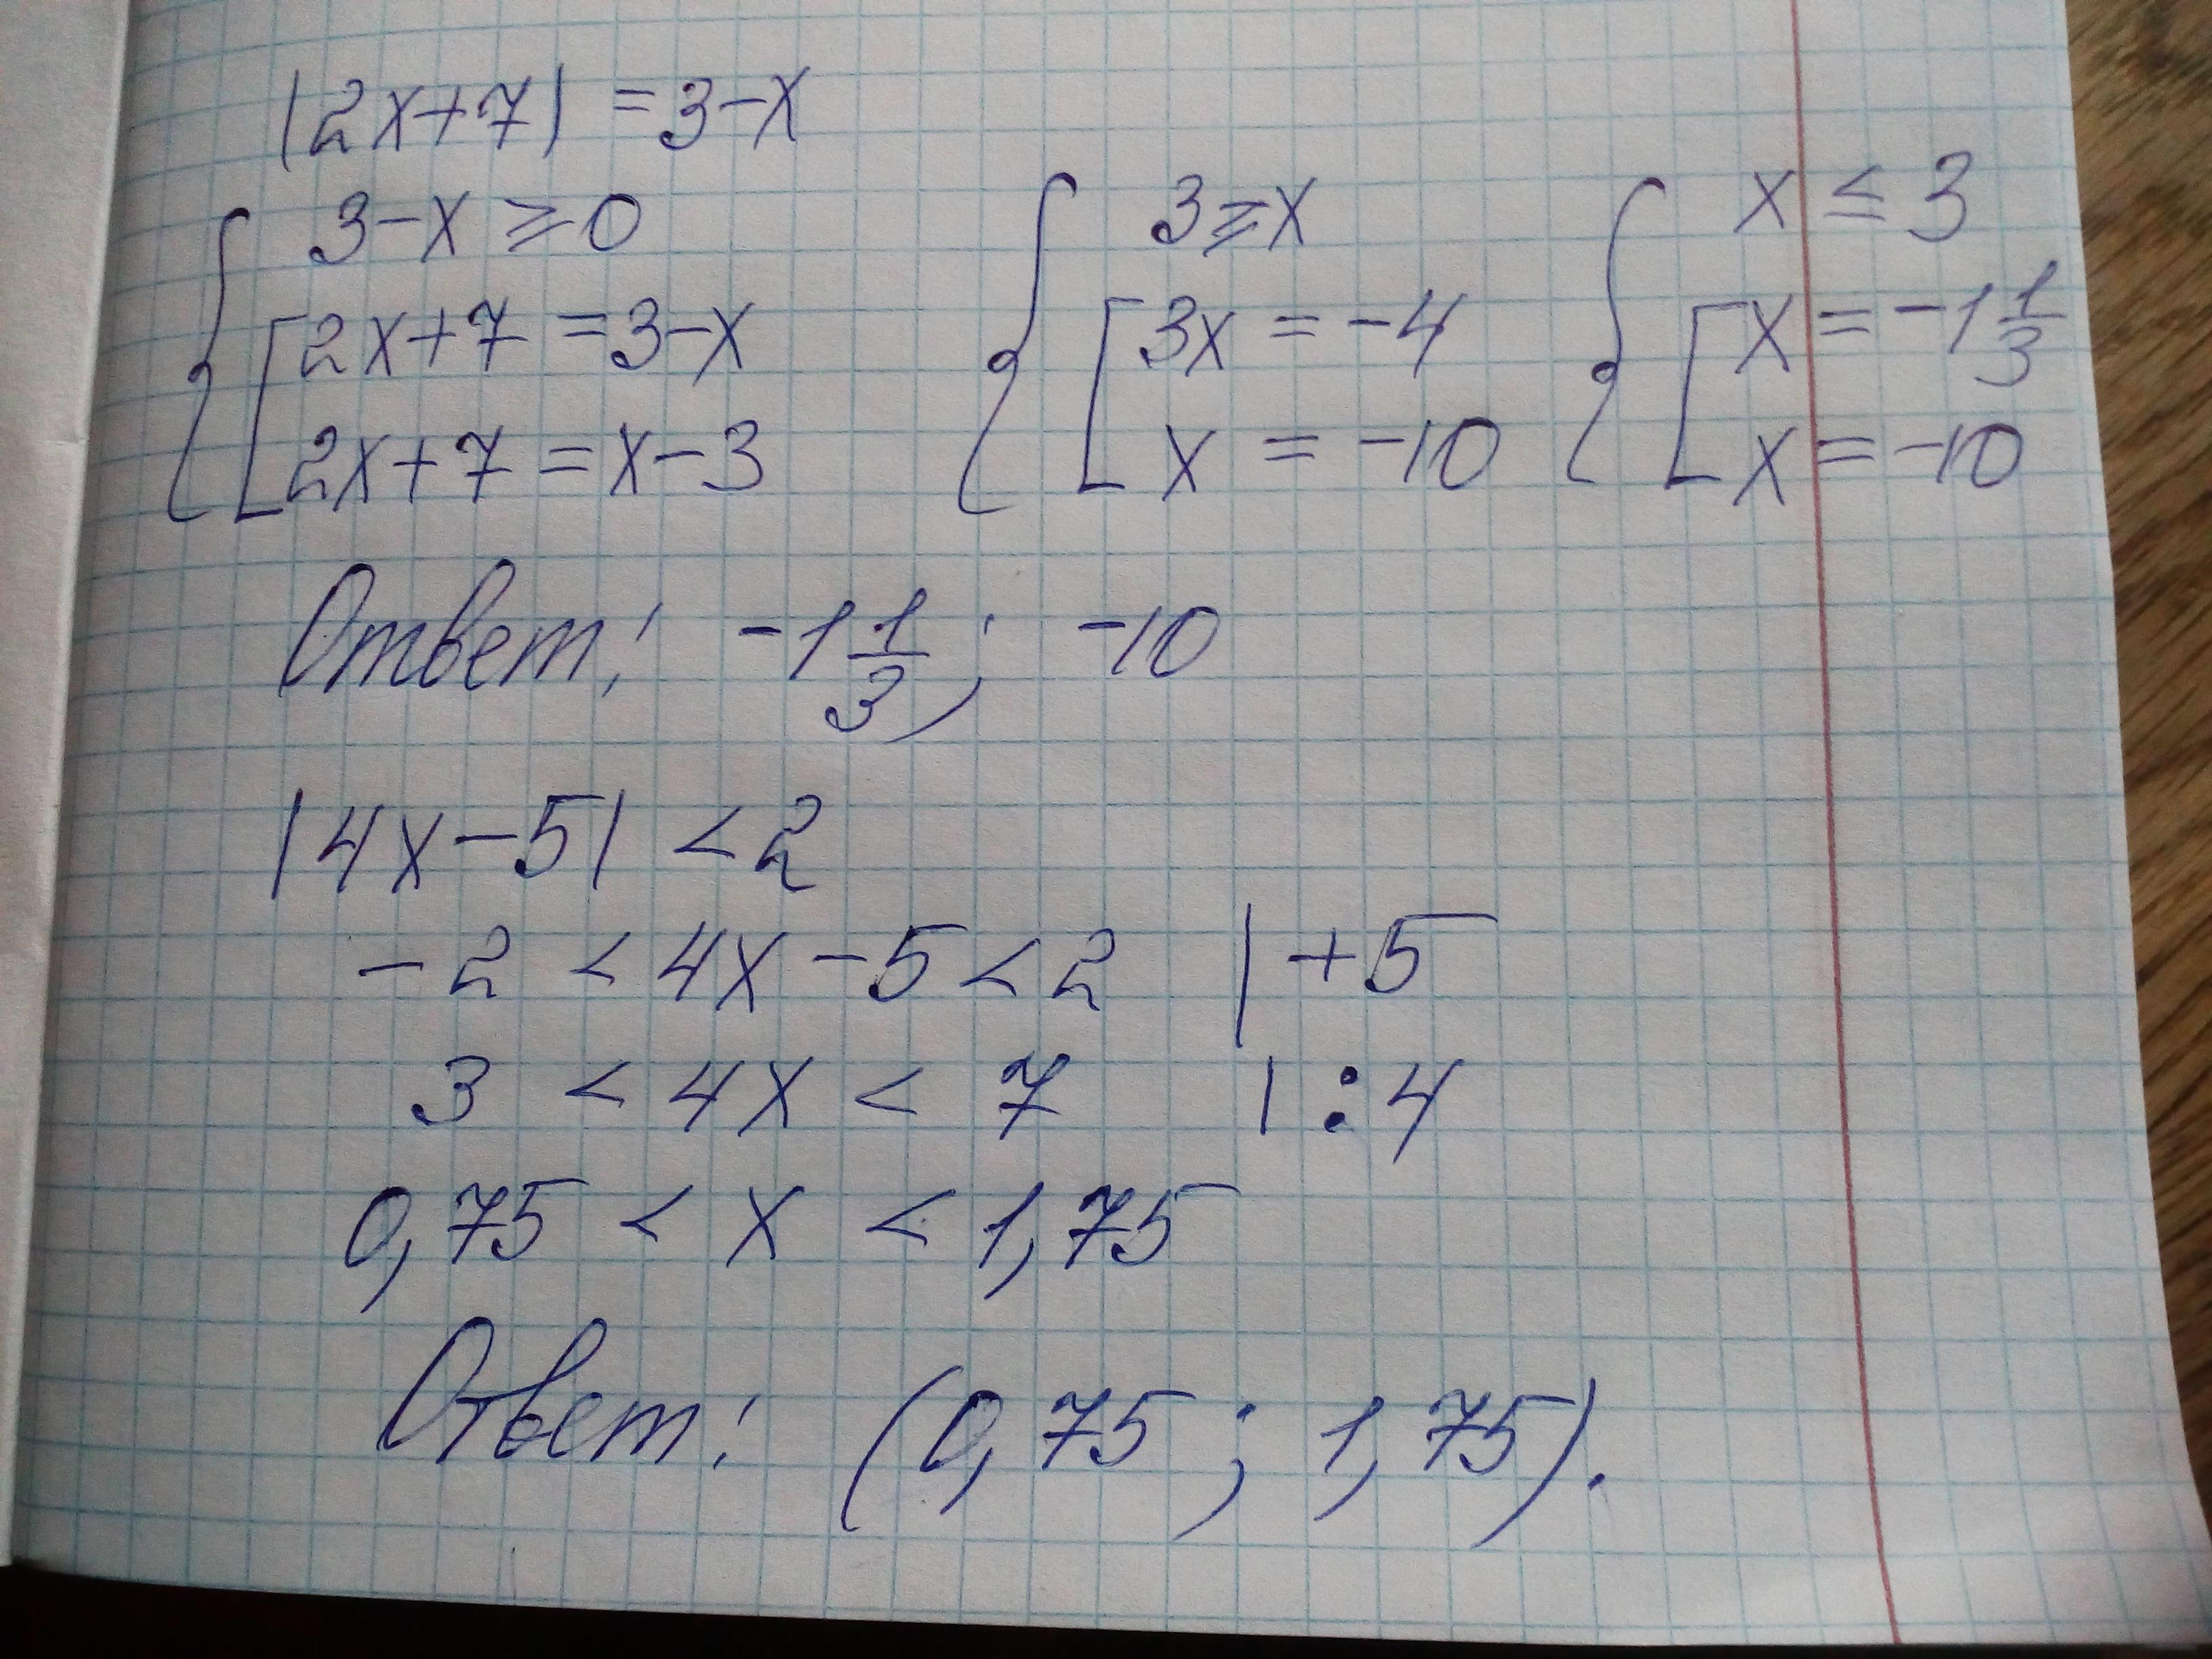 |2x+7| = 3-x
{ 3-x ⩾ 0 { 3 ⩾ x { x ≤ 3
[ 2x+7 = 3-x [ 3x = -4 [ x = -1 1/3
2x+7 = x-3 x = -10 x = -10
Ответ: -1 1/3; -10
|4x-5| < 2
-2 < 4x-5 < 2 | +5
3 < 4x < 7 | :4
0,75 < x < 1,75
Ответ: (0,75; 1,75).